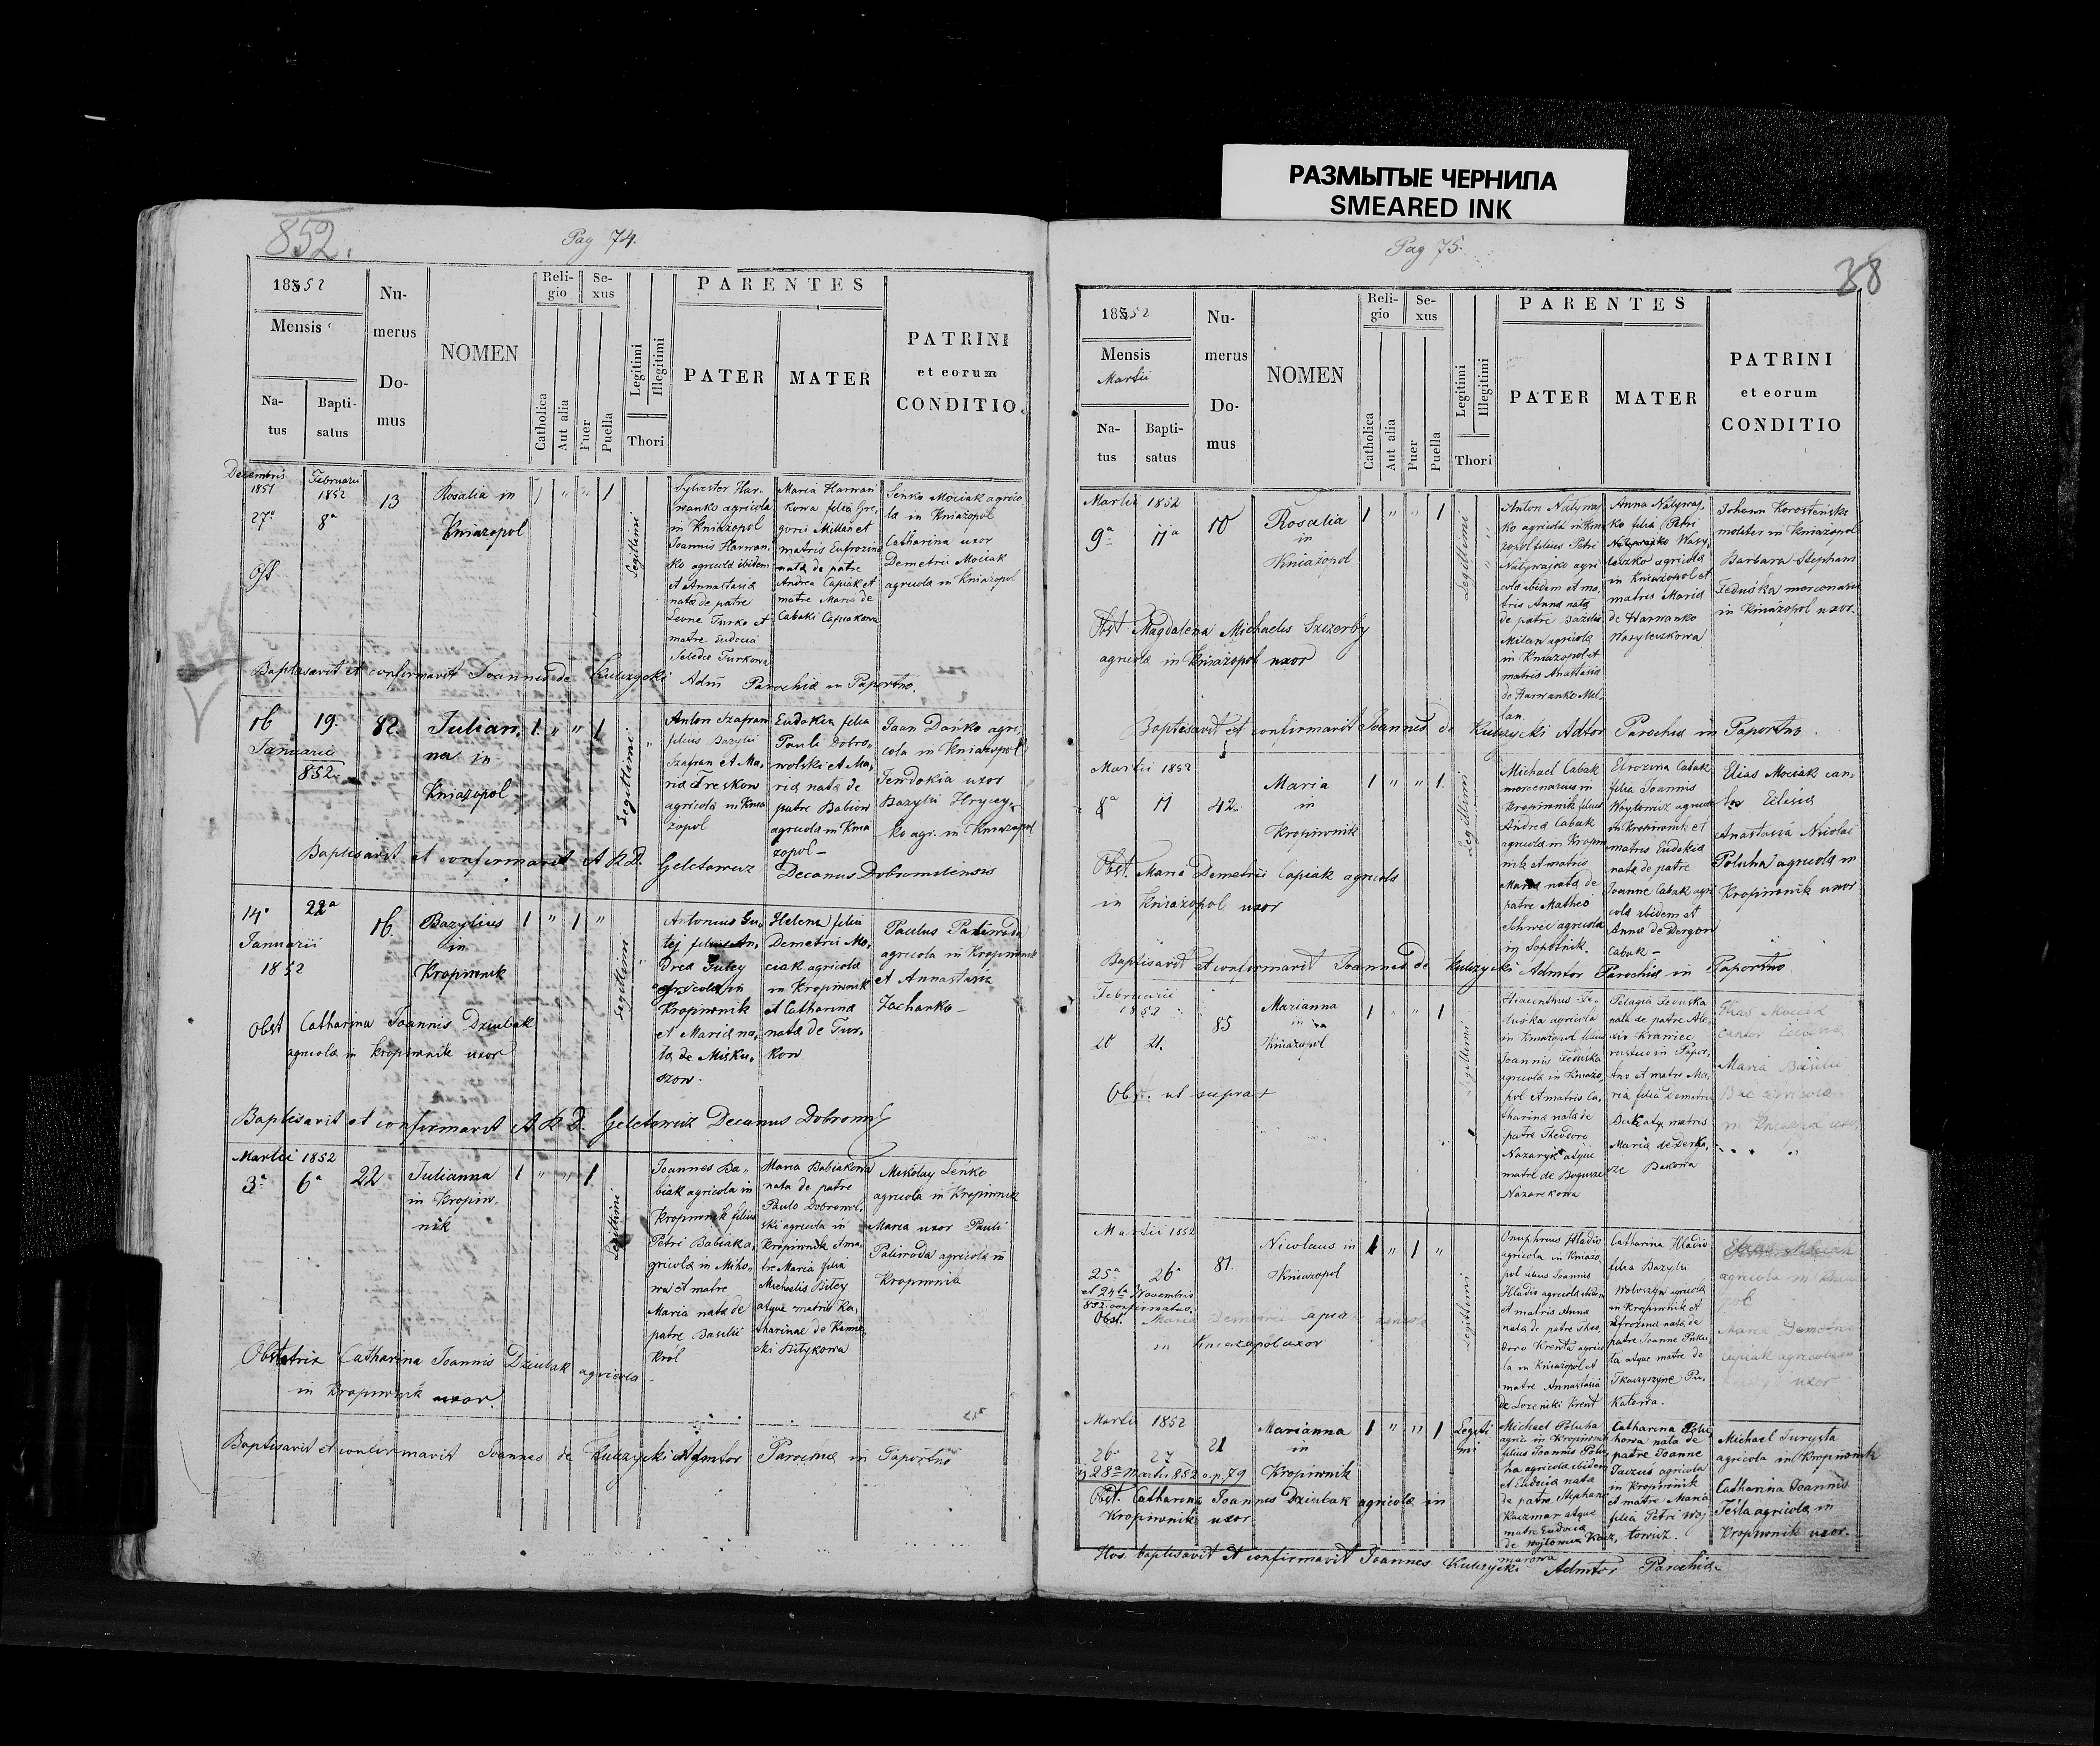 РАЗМЫТЫЕ ЧЕРНИЛА
SMEARED INK
852.
Pag 74.
1852
Mensis
Na-
tus
Bapti-
satus
Nu-
merus
Do-
mus
NOMEN
Reli-
gio
Catholica
Aut alia
Se-
xus
Puer
Puella
Legitimi
Illegitimi
Thori
PARENTES
PATER
MATER
PATRINI
et eorum
CONDITIO.
Decembris
1851
27a
Februarii
1852
8a
13
Rosalia in
Kniazopol
1 " " 1
Legitimi
Sylvester Har-
wanko agricola
in Kniazopol
Joannis Harwan,
ko agricola ibidem
et Annastasia
nata de patre
Leone Turko et
matre Eudocia
Turkowa
Maria Harwan
kowa filia Gre,
gorii Millan et
matris Eufrozina
nata de patre
Andrea Capiak et
matre Maria de
Cabaki Capiakowa
Senko Mociak agrico
la in Kniazopol
Catharina uxor
Demetrii Mociak
agricola in Kniazopol
Baptisavit et confirmavit Joannes de Kulczycki Adm Parochia in Paportno.
16
Januarii
19.
852.
82
Julian,
na in
Kniazopol
1 " " 1
Legitimi
Anton Szafran
filius Bazylii
Szafran et Ma,
ria Freskow
agricola in Knia
zopol
Eudokia filia
Pauli Dobro,
wolski et Ma,
ria nata de
patre Babiow
agricola in Knia
zopol-
Jaan Dańko agri,
cola in Kniazopol
Jewdokia uxor
Bazylii Hrycy,
ko agr. in Kniazopol
Baptisavit et confirmavit A R D. Geletowicz Decanus Dobromilensis
14a
Januarii
1852
22a
16.
Bazylius
in
Kropiwnik
1 " 1 "
Legitimi
Antonius Gu,
lej filius An,
drea Guley
agricola in
Kropiwnik
et Maria na,
ta de Misku,
szow.
Helena filia
Demetrii Mo,
ciak agricola
in Kropiwnik
et Catharina
nata de Tur,
kow
Paulus Paliwoda
agricola in Kropiwnik
et Annastasia
Zacharko-
Obst Catharina Joannis Dziubak
agricola in Kropiwnik uxor
Baptisavit et confirmavit A R D. Geletowicz Decanus Dobromil
Martii 1852
3a
6a
22
Julianna
in Kropiw,
nik
1 " " 1
Legitimi
Joannes Ba,
biak agricola in
Kropiwnik filius
Petri Babiak a,
gricola in Miho,
wa et matre
Maria nata de
patre Basilii
Król
Maria Babiakowa
nata de patre
Paulo Dobrowol,
ski agricola in
Kropiwnik et ma,
tre Maria filia
Michaelis Bilcy
atque matris Ka,
tharinae de
Bilykowa
Mikolay Leńko
agricola in Kropiwnik
Maria uxor Pauli
Paliwoda agricola in
Kropiwnik
Obstetrix Catharina Joannis Dziubak agricola
in Kropiwnik uxor.
Baptisavit et confirmavit Joannes de Kulczycki Admtor Parochia in Paportno
Pag 75.
38
1852
Mensis
Martii
Na-
tus
Bapti-
satus
Nu-
merus
Do-
mus
NOMEN
Reli-
gio
Catholica
Aut alia
Se-
xus
Puer
Puella
Legitimi
Illegitimi
Thori
PARENTES
PATER
MATER
PATRINI
et eorum
CONDITIO
Martii 1852
9a
11a
10
Rosalia
in
Kniazopol
1 " " 1
Legitimi
Anton Natywaj
ko agricola in Knia
zopol filius Petri
Natywajko agri
cola ibidem et ma,
tris Anna nata
de patre Bazilio
Milan agricola
in Kniazopol et
matris Anastasia
de Harwanko Mil,
lan.
Anna Natywaj,
ko filia Petri
Wasy,
leczko agricola
in Kniazopol et
matris Maria
de Harwanko
Wasyleczkowa
Johann Korosteński
moliter in Kniazopol
Barbara Stephani
Feduśka mercenarii
in Kniazopol uxor.
Obst Magdalena Michaelis Szczerby
agricola in Kniazopol uxor
Baptisavit et confirmavit Joannes de Kulczycki Adtor Parochia in Paportno.
Martii 1852
8a
11
42.
Maria
in
Kropiwnik
1 " " 1.
Legitimi
Michael Cabak
mercenarius in
Kropiwnik filius
Andrea Cabak
agricola in Kropiw
nik et matris
Maria nata de
patre Matheo
Schwec agricola
in Sopotnik.
Efrozina Cabak
filia Joannis
Woytowicz agricola
in Kropiwnik et
matris Eudokia
nata de patre
Joanne Cabak agri
cola ibidem et
Anna de Dergon
Cabak-
Elias Mociak can,
tor
Anastasia Nicolai
Poluha agricola in
Kropiwnik uxor
Obst. Maria Demetrii Capiak agricola
in Kniazopol uxor
Baptisavit et confirmavit Joannes de Kulczycki Admtor Parochia in Paportno
Februarii
1852
20
21.
85
Marianna
in
Kniazopol
1 " " 1
Legitimi
Hiacinthus Fe,
duśka agricola
in Kniazopol filius
Joannis Feduśka
agricola in Kniazo,
pol et matris Ca,
tharina nata de
patre Theodoro
Nazaryk atque
matre de Bogusze
Nazarekowa
Pelagia Feduska
nata de patre Ale,
xio Krawiec
rustico in Papor,
tno et matre Ma,
ria filia Demetrii
matris
Maria de
Bakowa
Elias Mociak
cantor
Maria Basilii
Bak agricola
in Kniazopol uxor
Obst. ut supra
Martii 1852
25a
26a
et 24ta Novembris
852 confirmatus.
81.
Nicolaus in
Kniazopol
1 " 1 "
Legitimi
Onuphrius Hladio
agricola in Kniazo,
pol filius Joannis
Hladio agricola ibidem
et matris Anna
nata de patre Theo,
doro Krenta agrico
la in Kniazopol et
matre Annastasia
de Lozeniki Krent
Catharina Hladio
filia Bazylii
Woloszyn agricola
in Kropiwnik et
Efrozina nata de
patre Joanne
atque matre de
Tkaczyszyne Pu,
katowa.
agricola in
Maria Demetrii
Capiak agricola in
uxor
Obst. Maria Demetrii Capiak
in Kniazopol uxor
Martii 1852
26a
27
28a Martii 852 o.p. 79
21
Marianna
in
Kropiwnik
1 " " 1
Legiti
mi
Michael Poluha
agric in Kropiwnik
filius Joannis Polu,
ha agricola ibidem
et Eudocia nata
de patre Stephano
Kaczmar atque
matre Eudocia
de Wojtowicz Kacz,
marowa
Catharina Polu,
howa nata de
patre Joanne
agricola
in Kropiwnik
et matre Maria
filia Petri Woj
towicz.
Michael Turysta
agricola in Kropiwnik
Catharina Joannis
Tesla agricola in
Kropiwnik uxor.
Obst. Catharina Joannis Dziubak agricola in
Kropiwnik uxor
Hos baptisavit et confirmavit Joannes Kulczycki Admtor Parochia